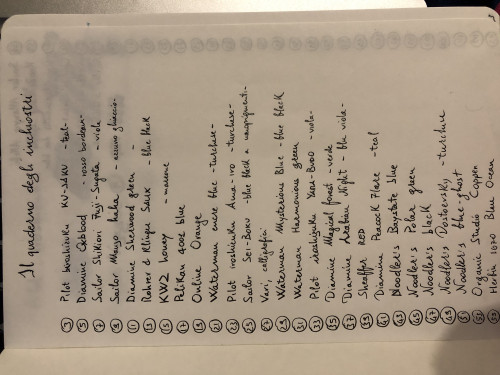 Il quaderno degli inchiostri
3 Pilot Iroshizuku KU-JAKU - teal-
5 Diamine Oxblood - rosso bordeaux-
7 Sailor Shikiori Fuji-Sugata - viola
9 Sailor Manyo haha - azzurro ghiaccio-
11 Diamine Sherwood green -
13 Rohrer & Klingner Salix - blue black
15 KWZ honey - marrone
17 Pelikan 4001 blue
19 Online Orange
21 Waterman encre blue - turchese-
23 Pilot iroshizuku Ama-iro - turchese-
25 Sailor Sei-Boku - blue black a
27 Vari, calligrafici
29 Waterman Mysterious Blue - blue black
31 Waterman Harmonious green
33 Pilot iroshizuku Yama-Budo - viola-
35 Diamine Magical forest - verde
37 Diamine Arabian Night - blu viola-
39 Sheaffer RED
41 Diamine Peacock Flare - teal
43 Noodler's Baystate blue
45 Noodler's Polar green
47 Noodler's black
49 Noodler's Dostoevsky - turchese
51 Noodler's blue-ghost
Organic Studio Copper
Herbin 1670 Blue Ocean